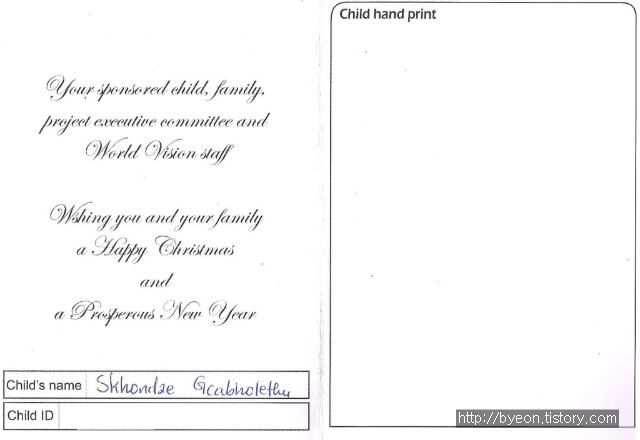 Your sponsored child, family,
project executive committee and
World Vision staff
Wshing you and your family
a Happy Christmas
and
a Prosperous New Year
Child's name Skhondze
Child ID
Child hand print
http://byeon.tistory.com